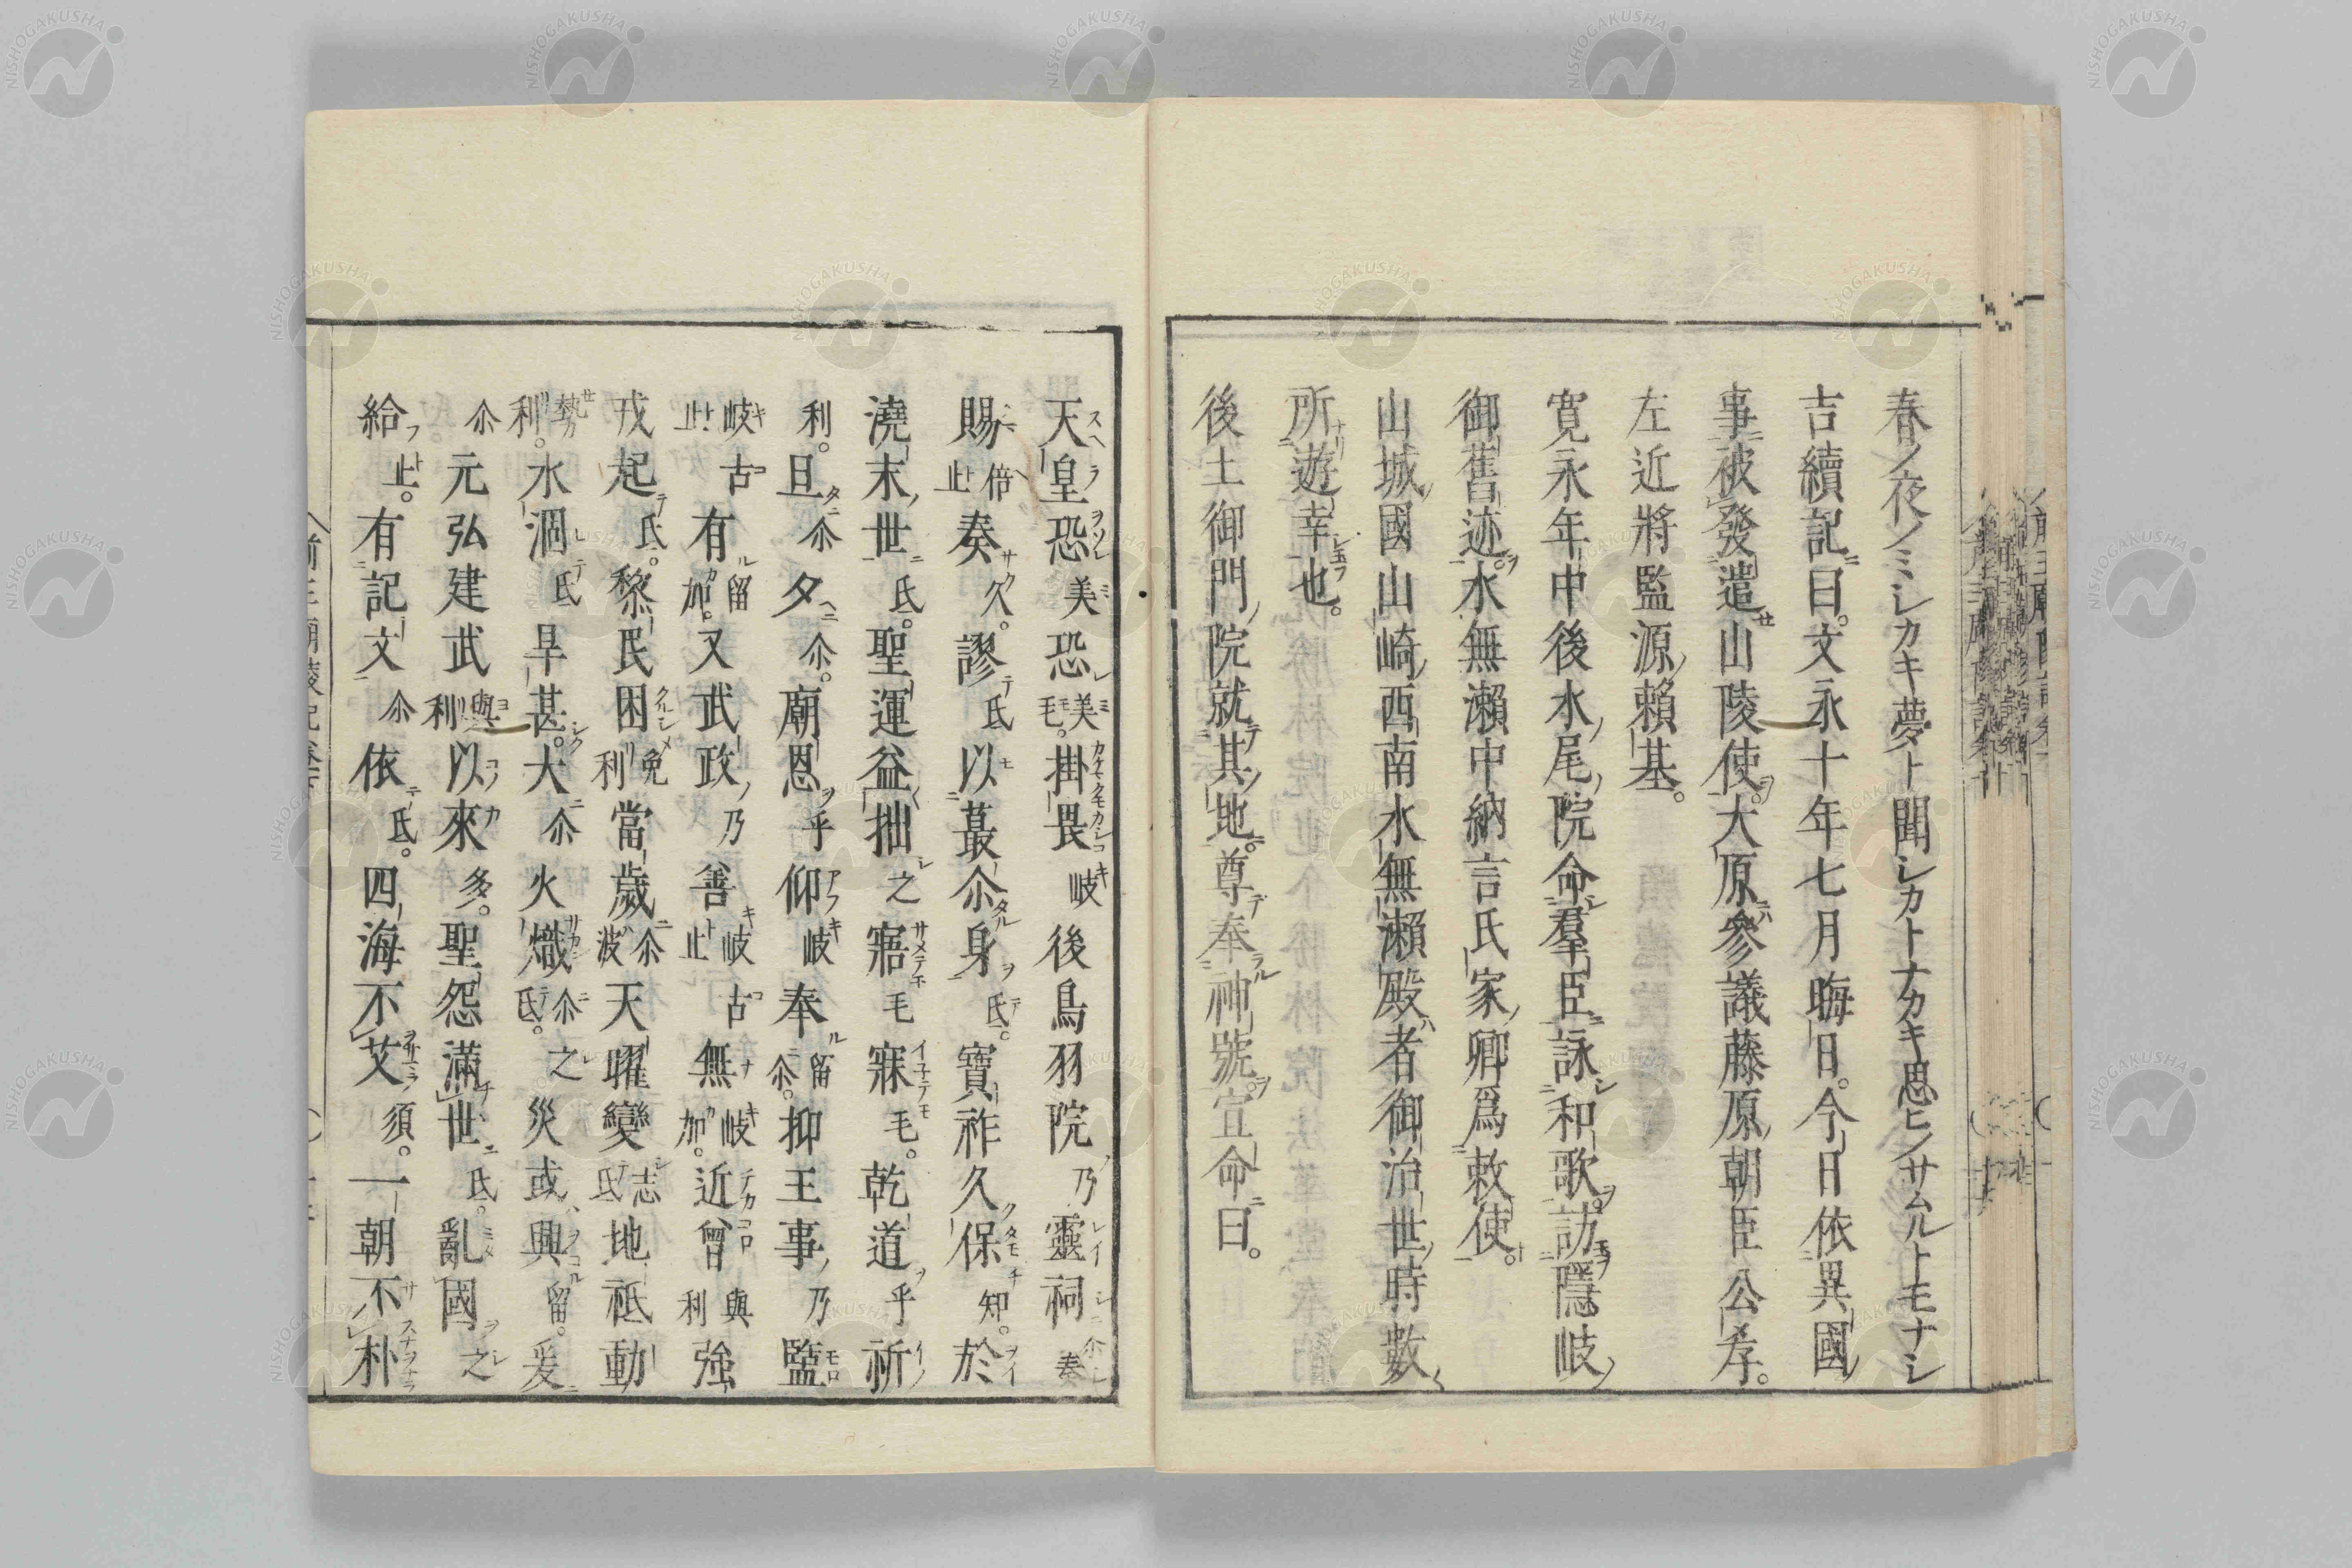 春ノ夜ノミシカキ夢ト聞シカトナカキ思ヒノサムルトモナシ
吉續記曰。文永十年七月晦日。今日依異國
事被發遣山陵使。大原參議藤原朝臣公孝。
左近將監源賴基。
寛永年中後水尾院命羣臣詠和歌。訪隱岐
御舊迹。水無瀬中納言氏家卿爲敕使。
山城國山崎西南水無瀬殿者御治世時數
所遊幸也。
後土御門院就其地。尊奉神號。宣命曰。
天皇恐美恐美毛。掛畏岐後鳥羽院乃靈祠尓奏
賜倍止奏久。謬氐以蕞尓身氐。寶祚久保知。於
澆末世氐。聖運益拙之寤毛寐毛。乾道乎祈
利。旦尓夕尓。廟恩乎仰岐奉留尓。抑王事乃監
岐古止有留加。又武政乃善岐古止無岐加。近曾與利強
戎起氐。黎民困免利當歲尓波天曜變志氐地祇動
勢利。水涸氐旱甚。大尓火熾尓氐。之災或興留。爰
尓元弘建武與利以來多。聖怨滿世氐。亂國之
給止。有記文尓依氐。四海不艾須。一朝不朴
NISHOGAKUSHA